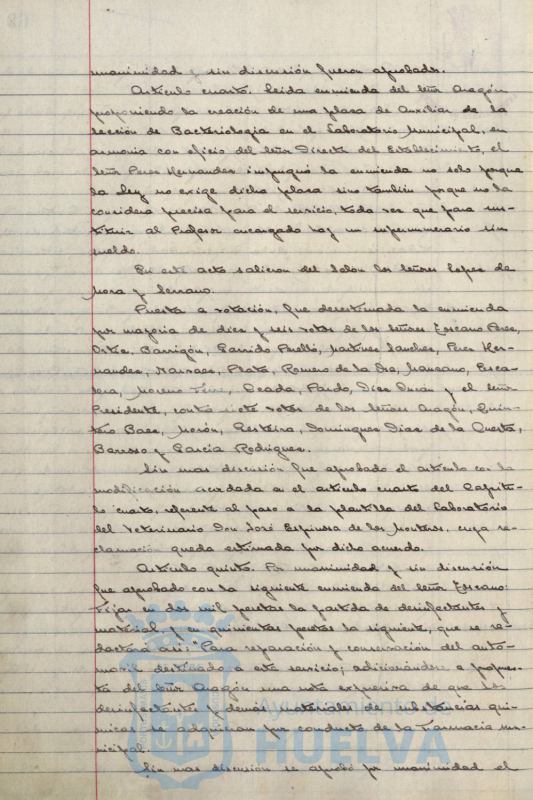 unanimidad y sin discusión fueron aprobados.
Artículo cuarto. Leida enmienda del Señor Aragón
proponiendo la creación de una plaza de Auxiliar de la
Sección de Bacteriologia en el Laboratorio Municipal, en
armonia con oficio del Señor Director del Establecimiento, el
Señor Perez Hernandez impugnó la enmienda no solo porque
la Ley no exige dicha plaza sino tambien porque no la
considera precisa para el servicio, toda vez que para sus-
tituir al Profesor encargado hay un supernumerario sin
sueldo.
En este acto salieron del Salón los Señores Lopez de
Mora y Serrano.
Puesta a votación, fue desestimada la enmienda
por mayoria de diez y seis votos de los Señores Escano Perez,
Ortiz, Barrigón, Garrido Perelló, Martinez Sanchez, Perez Her-
nandez, Narvaez, Plata, Romero de la Osa, Manzano, Esca-
lera, Moreno, Pardo, Diaz y el Señor
Presidente, contra siete votos de los Señores Aragón, Quin-
tero Baez, Morón, Dominguez Diaz de la Cuesta,
Barroso y Garcia Rodriguez.
Sin mas discusión fue aprobado el artículo con la
modificación acordada en el artículo cuarto del Capitu-
lo cuarto, referente al paso a la plantilla del Laboratorio
del Veterinario Don José Espinosa de los Monteros, cuya re-
clamación queda estimada por dicho acuerdo.
Artículo quinto. Por unanimidad y sin discusión
fue aprobado con la siguiente enmienda del Señor Escano:
Fijar en dos mil pesetas la partida de desinfectantes y
material y en quinientas pesetas la siguiente, que se re-
dactará asi: "Para reparación y conservación del auto-
movil destinado a este servicio; adicionándose a propues-
ta del Señor Aragón una nota expresiva de que los
desinfectantes y demás materiales de substancias qui-
micas se adquieran por conducto de la Farmacia mu-
nicipal.
Sin mas discusión se aprobó por unanimidad el
Ayuntamiento de
HUELVA